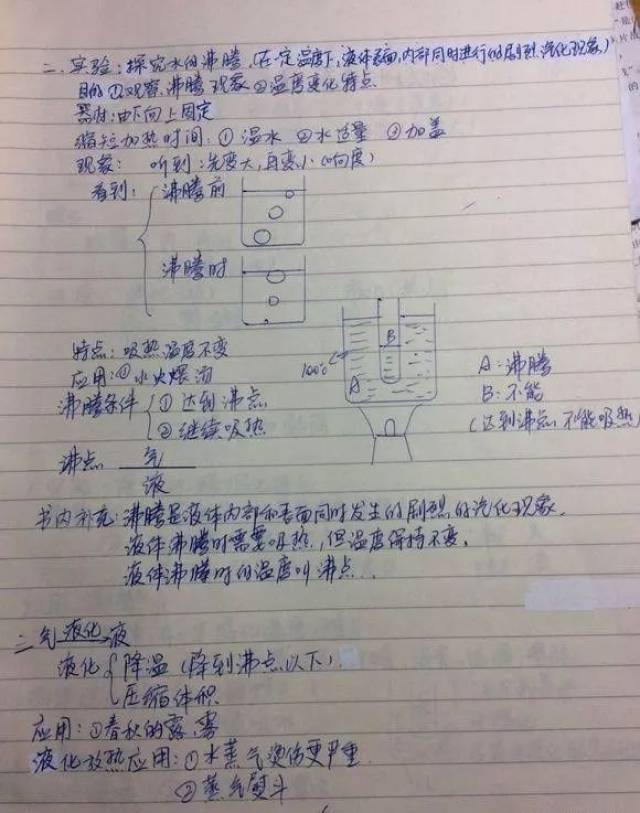 二、实验:探究水的沸腾 (在一定温度下,液体表面,内部同时进行的剧烈汽化现象)
目的 ①观察沸腾现象 ②温度变化特点
器材:由下向上固定
缩短加热时间:① 温水 ②水适量 ③加盖
现象: 听到:先变大,再变小(响度)
看到: 沸腾前
沸腾时
特点:吸热温度不变
应用:①水火煨汤
沸腾条件 ① 达到沸点
② 继续吸热
100℃
A
B
A:沸腾
B:不能
(达到沸点,不能吸热)
沸点 气
液
书内补充:沸腾是液体内部和表面同时发生的剧烈的汽化现象。
液体沸腾时需要吸热,但温度保持不变。
液体沸腾时的温度叫沸点.
三 气 液化 液
液化 降温 (降到沸点以下)
压缩体积
应用:①春秋的露、雾
液化放热应用:①水蒸气烫伤更严重
②蒸气熨斗